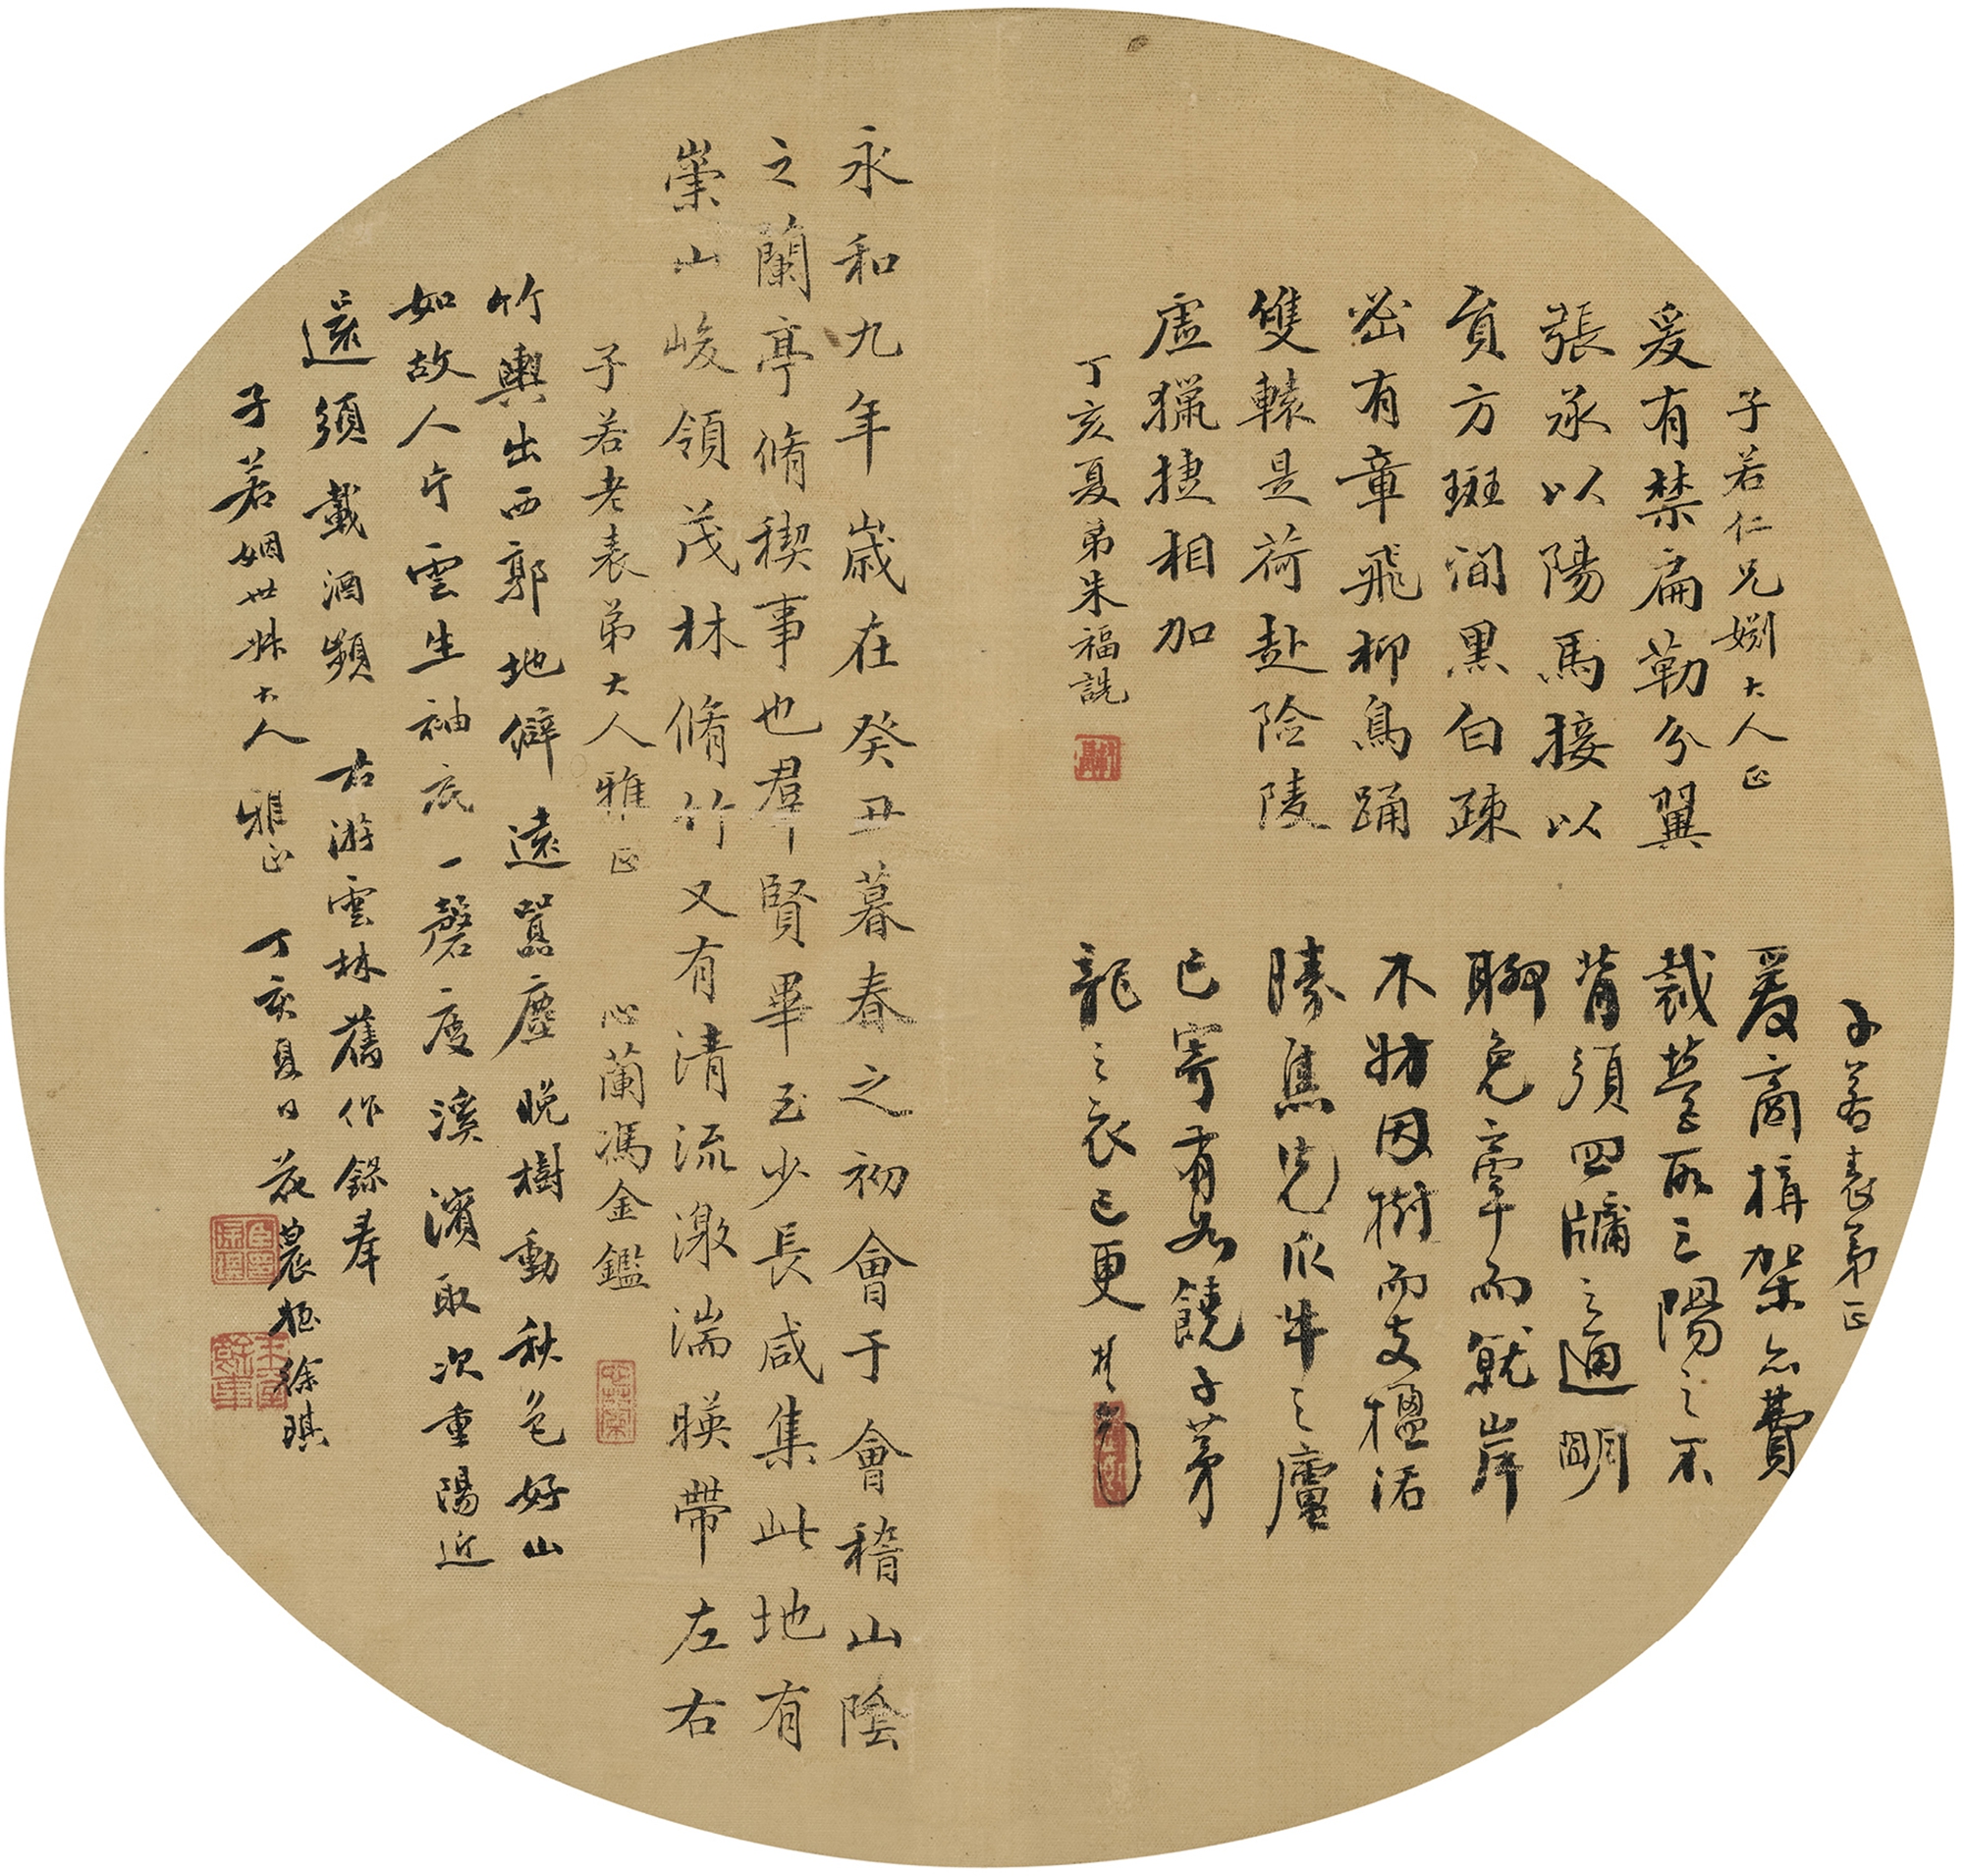 子若仁兄姻大人正
爰有禁扁勒分翼
張承以陽馬接以
員方斑間黑白疎
密有章飛柳鳥踊
雙轅是荷赴險陵
虛獵捷相加
丁亥夏弟朱福詵
子若表弟正
爰商構架亦費
裁營取三陽之不
背須四牖之通明
聊免牽而就岸
不妨因樹而支楹
勝焦先瓜牛之廬
已寄有如饒子茅
龍之衣已更
永和九年歲在癸丑暮春之初會于會稽山陰
之蘭亭脩稧事也羣賢畢至少長咸集此地有
崇山峻領茂林脩竹又有清流激湍暎帶左右
子若老表弟大人雅正 心蘭馮金鑑
竹輿出西郭地僻遠囂塵晚樹動秋色好山
如故人片雲生袖底一磬度溪濱取次重陽近
還須載酒頻 右游雲林舊作錄奉
子若姻世姊大人雅正 丁亥夏日花農弟徐琪